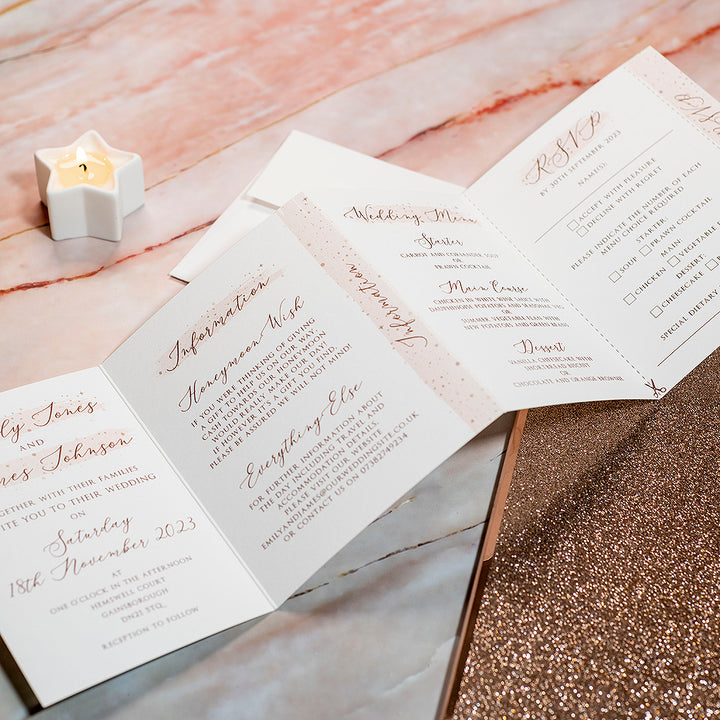 ly Jones
AND
mes Johnson
OGETHER WITH THEIR FAMILIES
ITE YOU TO THEIR WEDDING
ON
Saturday
18th November 2023
AT
ONE O'CLOCK IN THE AFTERNOON
HEMSWELL COURT
GAINSBOROUGH
DN21 5TQ
RECEPTION TO FOLLOW
Information
Honeymoon Wish
IF YOU WERE THINKING OF GIVING
A GIFT TO HELP US ON OUR WAY,
CASH TOWARDS OUR HONEYMOON
WOULD REALLY MAKE OUR DAY!
IF HOWEVER IT'S A GIFT YOU FIND,
PLEASE BE ASSURED WE WILL NOT MIND!
Everything Else
FOR FURTHER INFORMATION ABOUT
THE DAY INCLUDING TRAVEL AND
ACCOMMODATION DETAILS,
PLEASE VISIT OUR WEBSITE
EMILYANDJAMES@OURWEDDINGSITE.CO.UK
OR CONTACT US ON 07382749234
Information
Wedding Menu
Starter
CARROT AND CORIANDER SOUP
OR
PRAWN COCKTAIL
Main Course
CHICKEN IN WHITE WINE SAUCE WITH
NEW POTATOES AND SEASONAL VEG
OR
SUMMER VEGETABLE TART WITH
NEW POTATOES AND GREEN BEANS
Dessert
VANILLA CHEESECAKE WITH
SHORTBREAD BISCUIT
OR
CHOCOLATE AND ORANGE BROWNIE
RSVP
BY 30TH SEPTEMBER 2023
NAME(S):
ACCEPT WITH PLEASURE
DECLINE WITH REGRET
PLEASE INDICATE THE NUMBER OF EACH
MENU CHOICE REQUIRED
STARTER:
SOUP PRAWN COCKTAIL
MAIN:
CHICKEN VEGETABLE
DESSERT:
CHEESECAKE
SPECIAL DIETARY
RSVP